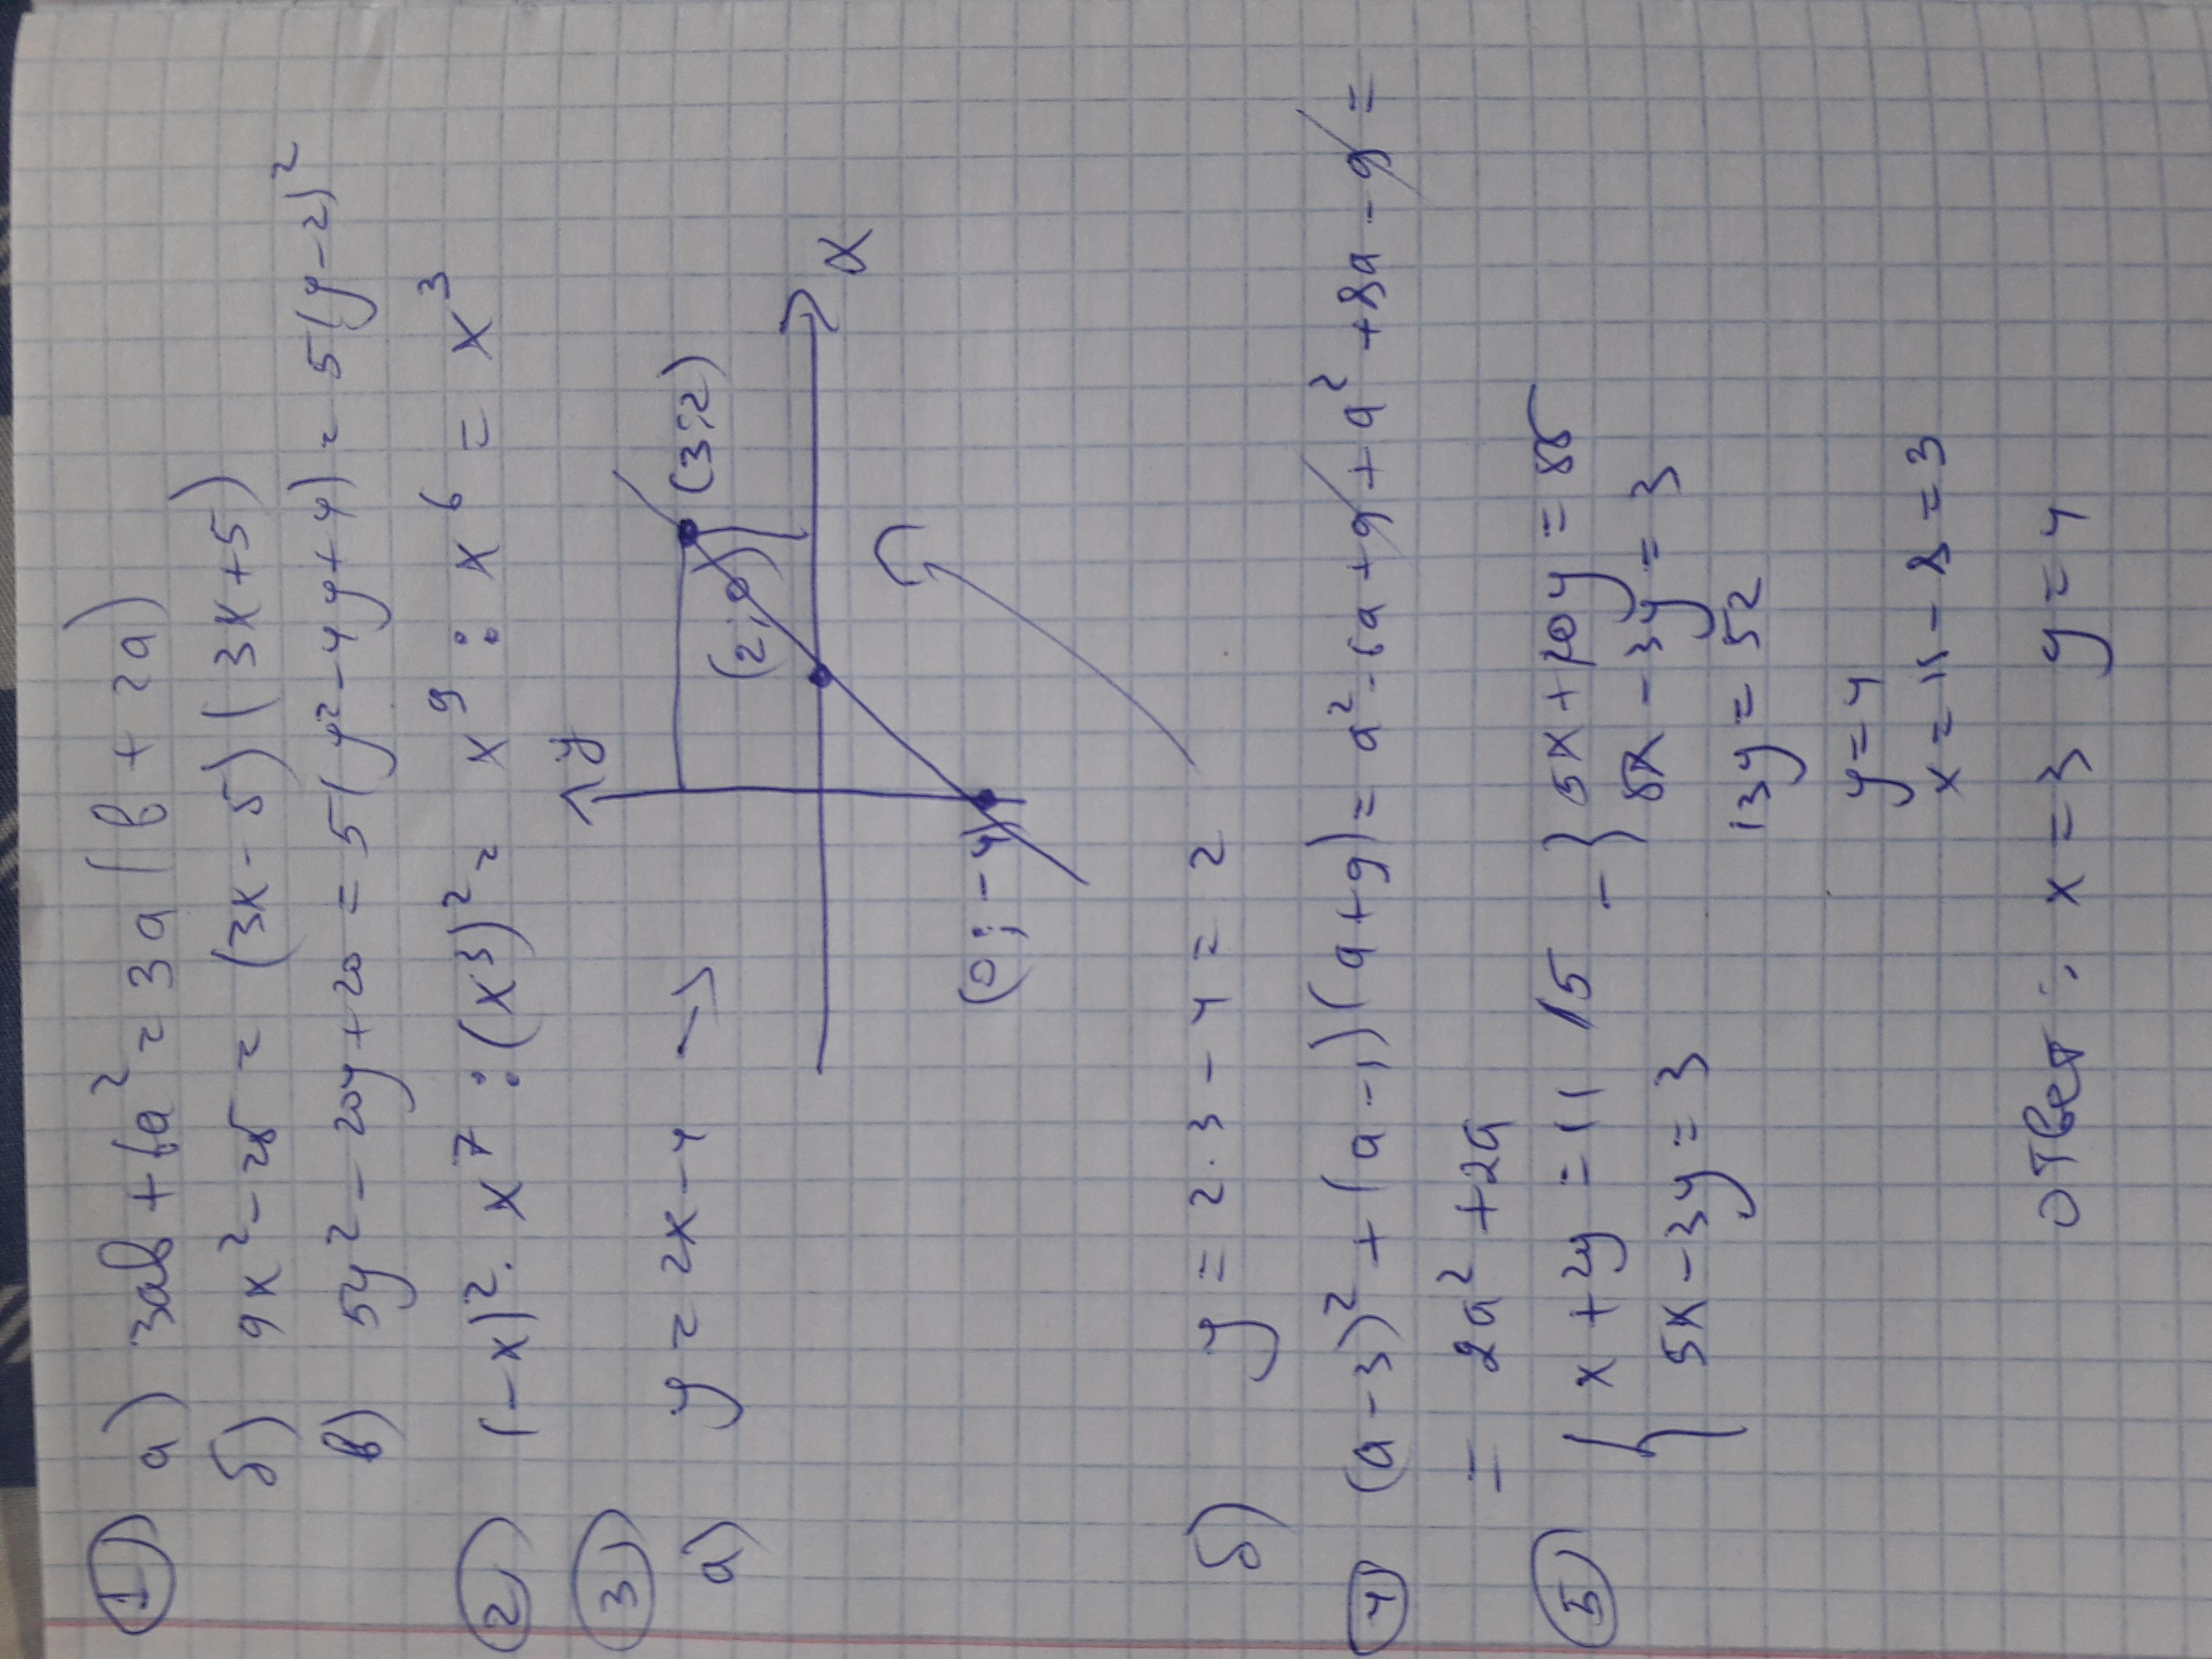 ① а) 3ab + 6a² = 3a (b + 2a)
б) 9x² - 25 = (3x - 5)(3x + 5)
в) 5y² - 20y + 20 = 5(y² - 4y + 4) = 5(y - 2)²
② (-x)² · x⁷ : (x³)² = x⁹ : x⁶ = x³
③
а) y = 2x - 4 →
y
(3;2)
(2;0)
x
(0;-4)
б) y = 2·3 - 4 = 2
④ (a - 3)² + (a - 1)(a + 9) = a² - 6a + 9 + a² + 8a - 9 =
= 2a² + 2a
⑤ { x + 2y = 11 |5 - } 5x + 10y = 55
5x - 3y = 3 5x - 3y = 3
13y = 52
y = 4
x = 11 - 8 = 3
Ответ: x = 3 y = 4